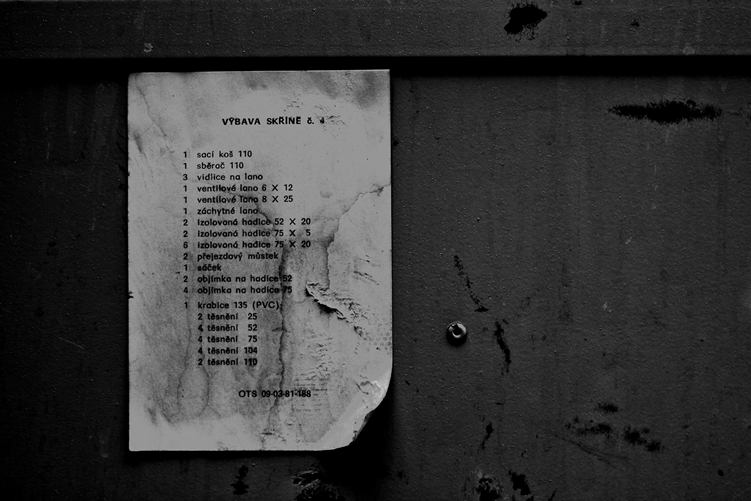 VÝBAVA SKŘÍNĚ č. 4
1 sací koš 110
1 sběrač 110
3 vidlice na lano
1 ventilové lano 6 X 12
1 ventilové lano 8 X 25
1 záchytné lano
2 izolovaná hadice 52 X 20
2 izolovaná hadice 75 X 5
6 izolovaná hadice 75 X 20
2 přejezdový můstek
1 sáček
2 objímka na hadice 52
4 objímka na hadice 75
1 krabice 135 (PVC)
2 těsnění 25
4 těsnění 52
4 těsnění 75
4 těsnění 104
2 těsnění 110
OTS 09-03-81-188